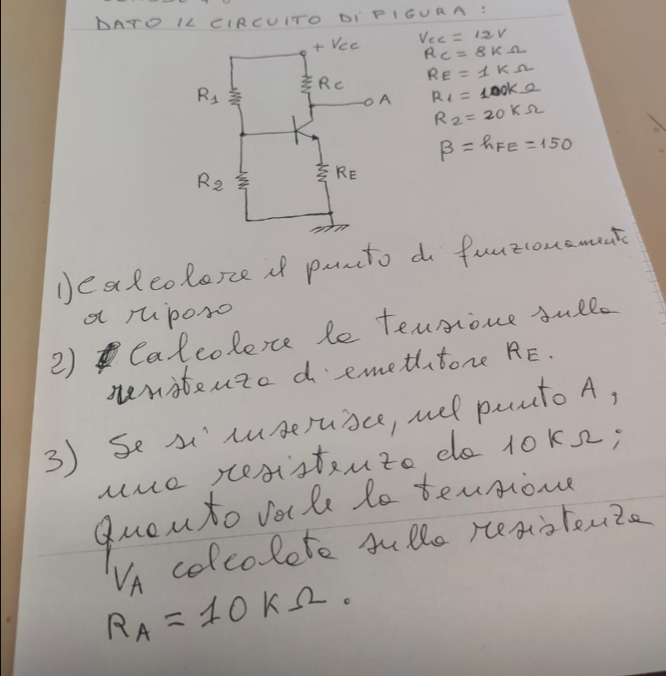 DATO IL CIRCUITO DI FIGURA:
+ Vcc
RC
A
R1
R2
RE
Vcc = 12V
RC = 8KΩ
RE = 1KΩ
R1 = 100KΩ
R2 = 20KΩ
β = hFE = 150
1) Calcolare il punto di funzionamento
a riposo
2) Calcolare la tensione sulla
resistenza di emettitore RE.
3) Se si inserisce, nel punto A,
una resistenza da 10KΩ;
Quanto vale la tensione
VA calcolata sulla resistenza
RA = 10KΩ.